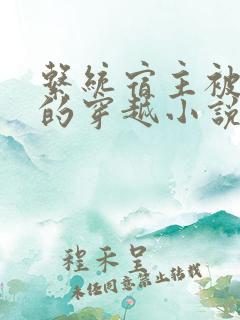 繫統宿主被
的穿越小說
程禾呈
未经同意禁止转载